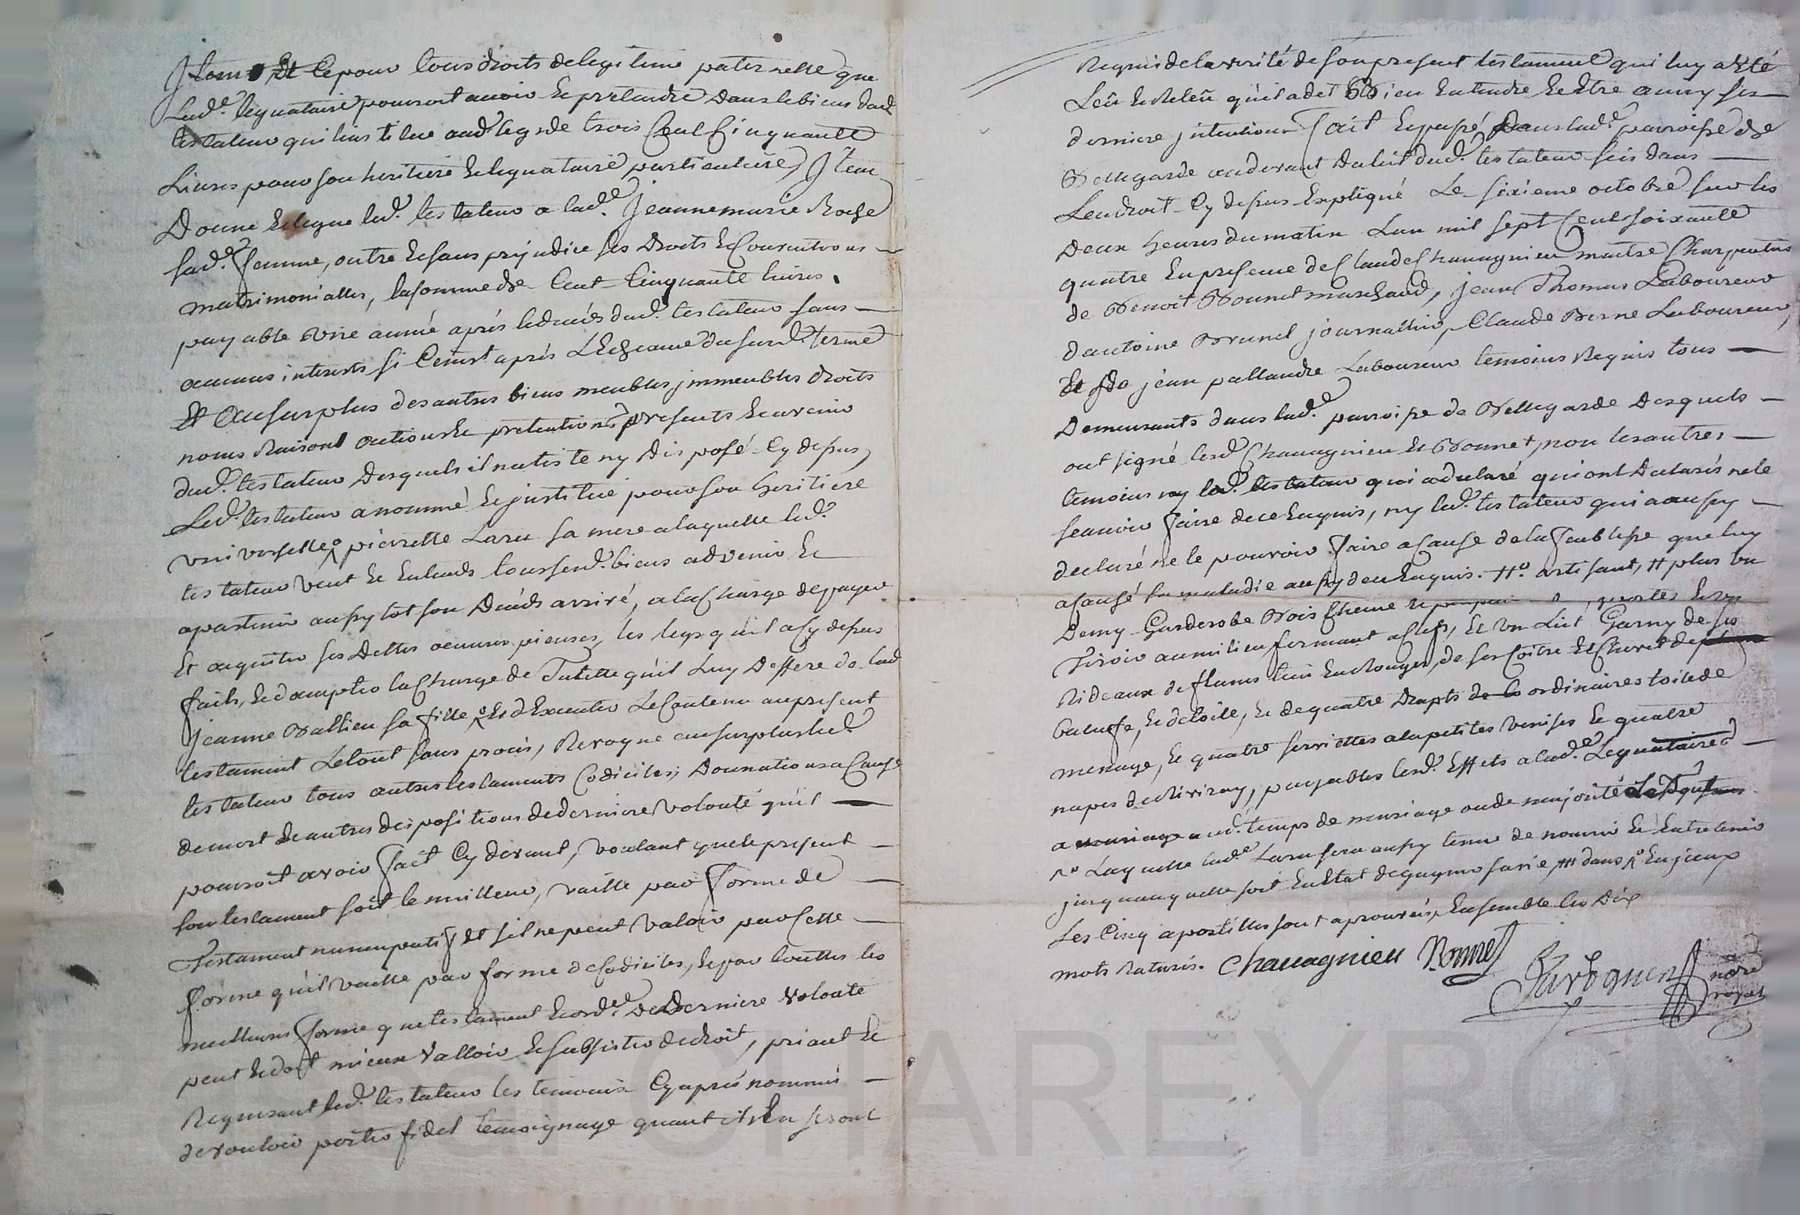 Item Et Ce pour tous droits de legitime paternelle que
Lad.e legnataire pourroit avoir et pretendre dans les biens dud
testateur qui linstitue aud. legs de trois Cent Cinquante
Livres pour son heritiere et legnataire particuliere, Item
Donne et legue led. testateur a lad.e Jeanne marie Roche
sad.e femme, outre et sans prejudice ses Droits et Conventions
matrimonialles, la somme de Cent Cinquante livres
payable une année après le decés dud. testateur sans
aucuns interets si Ce n'est après L'Echeance du susd. terme
Et au surplus des autres biens meubles immeubles droits
noms Raisons actions et pretentions presents et avenir
dud. testateur desquels il n'a testé ny Disposé Cy dessus,
Led. testateur a nommé et institué pour son heritiere
universelle pierrette Laru sa mere a laquelle led.
testateur veut et Entends tous sesd. biens advenir et
apartenir aussytot son Décés arrivé, a la Charge de payer
Et aquitter ses Dettes oeuvres pieuses, les legs qu'il a Cy dessus
faits, et d'accepter la Charge de Tutelle qu'il Luy Deffere de lad
jeanne Vallieu sa fille Et d'Executer Le Contenu au present
testament Le tout sans procés, Revoque au surplus led.
testateur tous autres testaments Codiciles, Dounations a Cause
de mort et autres dispositions de derniere volonté qu'il
pourroit avoir fait Cy devant, voulant que le present
son testament soit le meilleur, vaille par forme de
Testament nuncupatif Et s'il ne peut valoir par Cette
forme qu'il vaille par forme de Codiciles, et par touttes les
meilleures forme que testament et ord.ce De Derniere volonté
peut et doit mieux valloir et subsister de droit, priant et
Requerant led. testateur les temoins Cy après nommés
de vouloir porter fidel temoignage quant ils En seront
Requis de la verité de son present testament qui luy a eté
Leu et Releu qu'il a dit Bien Entendre et Etre a uny ses
derniere intentions fait et passé Dans lad.e parroisse de
Bellegarde au devant du lict dud. testateur sis dans
Lendroit Cy dessus Expliqué Le sixieme octobre sur les
Deux heures du matin L'an mil sept Cent soixante
quatre En presence de Claude Chavagnieu maitre Charpentier
de Benoit Bonnet marchand, jean Thomas Laboureur
d'antoine Brunel journallier, Claude Berne Laboureur,
Et De jean pallandre Laboureur temoins Requis tous
Demeurants dans lad.e parroisse de Bellegarde Desquels
ont signé lesd. Chavagnieu Et Bonnet, non les autres
temoins ny led. testateur qui a declaré qui ont Declarés ne le
seavoir faire de ce Enquis, ny led. testateur qui a aussy
declaré ne le pouvoir faire a Cause de la foiblesse que luy
a Causé sa maladie aussy de ce Enquis. artisant, plus un
Demy Garderobe Bois Chene portes Et un
Tiroir au milieu fermant a Clefs, Et un Lict Garny de ses
Rideaux de flanc teint En Rouge, de son Coitre Et Chevet de plume
baluffe, et de toile, et de quatre Drapts de lo ordinaires toile de
menage, et quatre serviettes a la petites venises et quatre
napes de Riviray, payables lesd. Effets a lad.e Legnataire
a mariage aud. temps de mariage ou de majorité
Laquelle lad.e Laru sera aussy tenue de nourrir Et Entretenir
jusqua quelle soit En Etat de gagner sa vie dans En jceux
Les Cinq apostilles sont aprouvées, Ensemble les Dix
mots raturés. Chavagnieu Bonnet
nore
royal
CHAREYRON